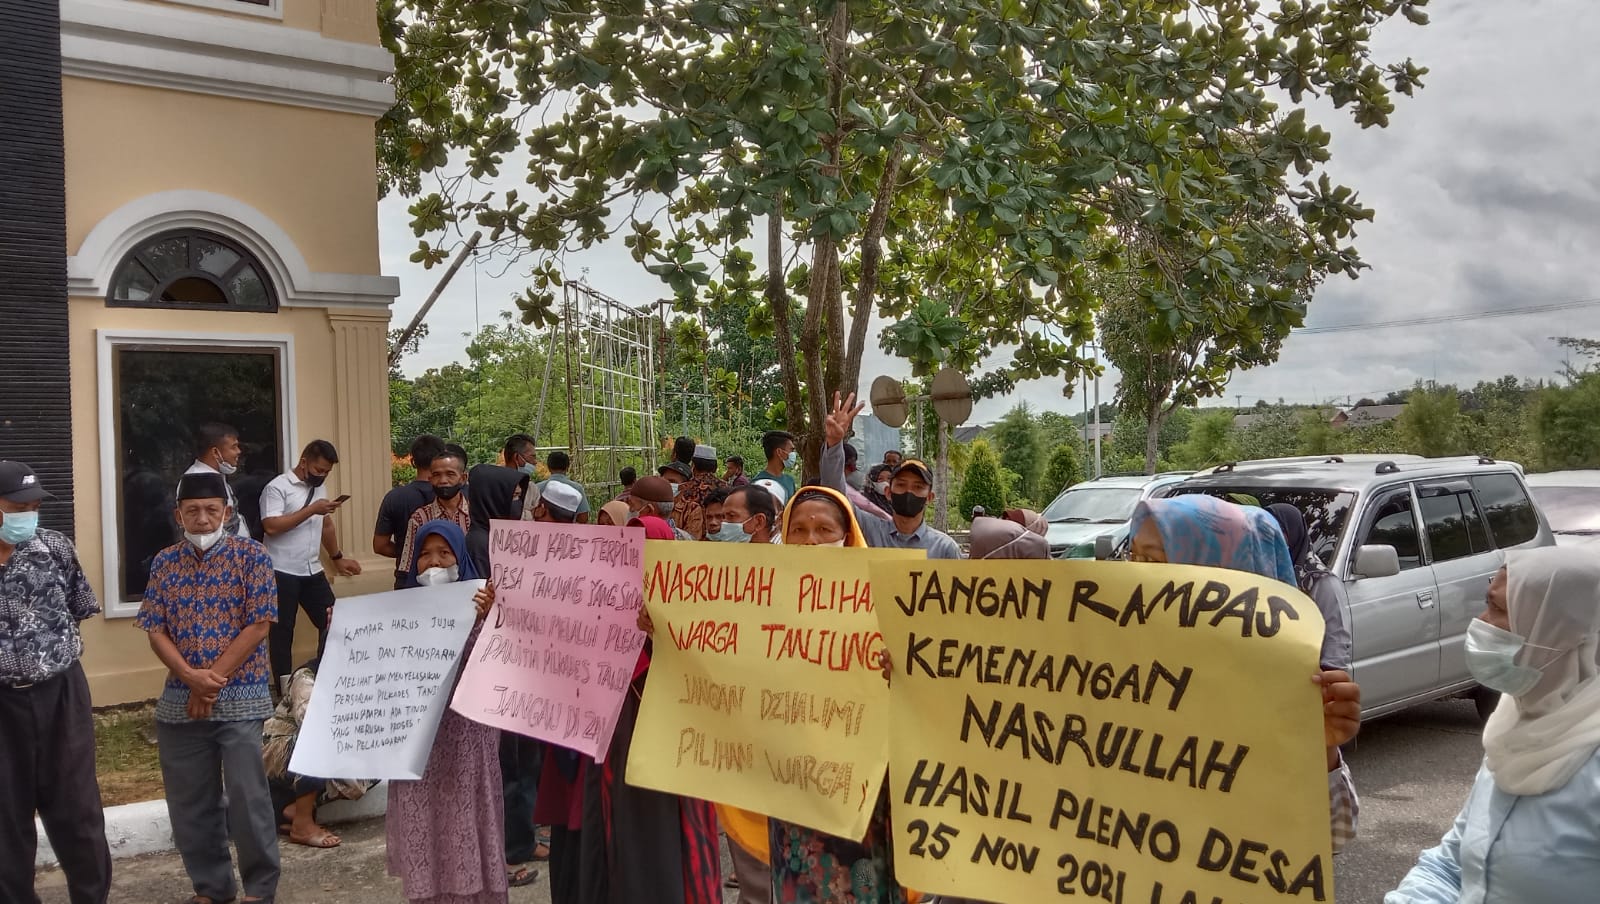 KAMPAR HARUS JUJUR
ADIL DAN TRANSPARAN
MELIHAT DAN MENYELESAIKAN
PERSOALAN PILKADES
JANGAN SAMPAI ADA
YANG MERUSAK PROSES
DAN PELANGGARAN
NASRUL KADES TERPILIH
DESA TANJUNG YANG
MELALUI
PANITIA PILKADES
JANGAN DI
NASRULLAH PILIHAN
WARGA TANJUNG
JANGAN DZHALIMI
PILIHAN WARGA
JANGAN RAMPAS
KEMENANGAN
NASRULLAH
HASIL PLENO DESA
25 NOV 2021